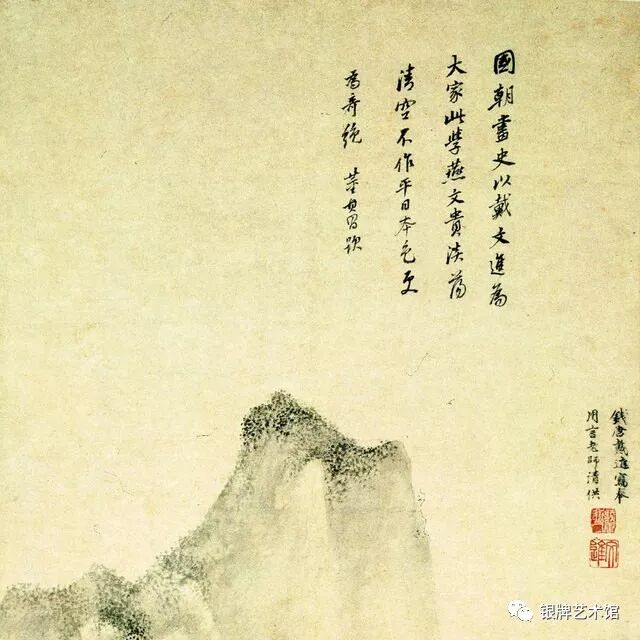 國朝畫史以戴文進為
大家此學燕文貴淡蕩
清空不作平日本色更
為奇絕 董其昌題
錢唐戴進寫奉
用言老師清供
银牌艺术馆